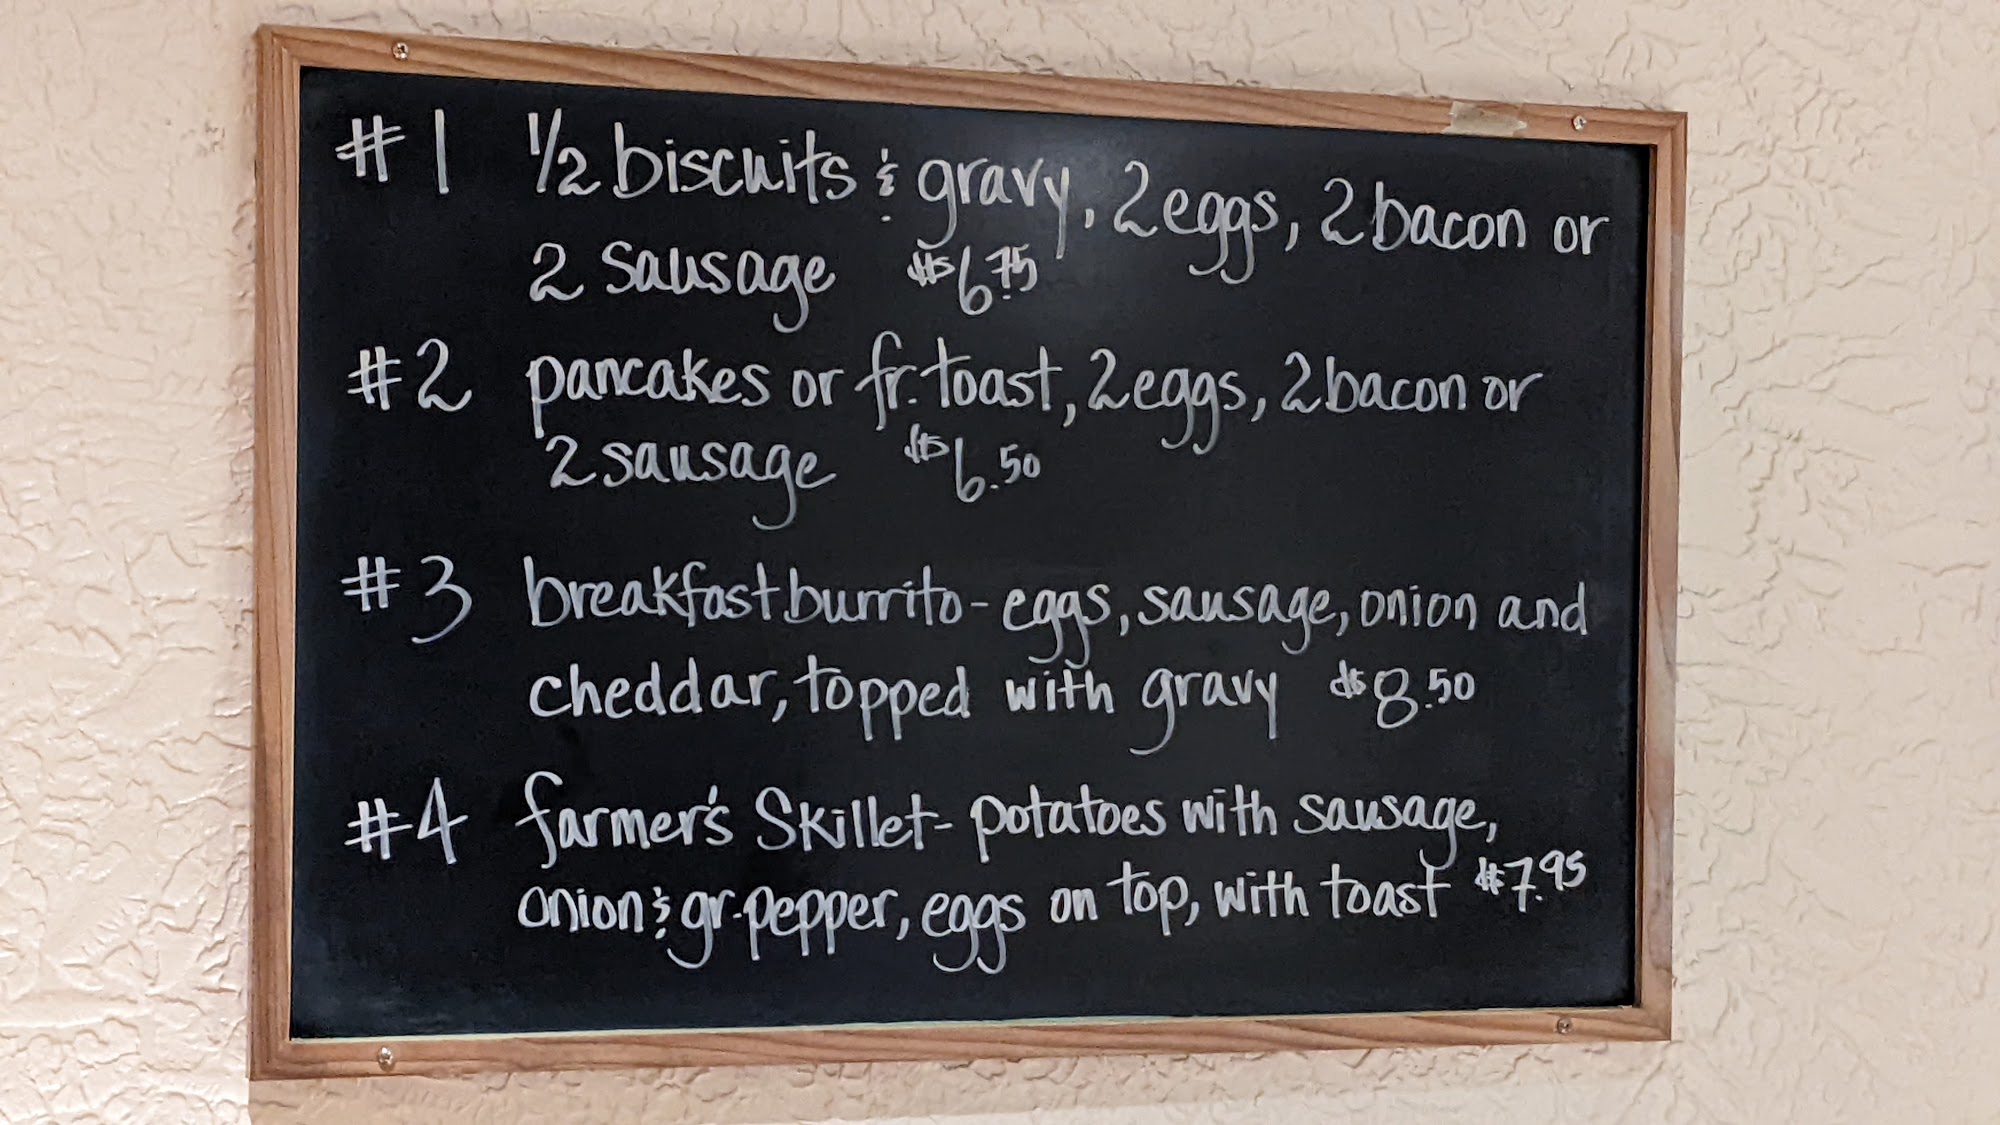 #1 1/2 biscuits & gravy, 2 eggs, 2 bacon or
2 sausage $6.75
#2 pancakes or fr. toast, 2 eggs, 2 bacon or
2 sausage $6.50
#3 breakfast burrito - eggs, sausage, onion and
cheddar, topped with gravy $8.50
#4 farmer's skillet - potatoes with sausage,
onion & gr. pepper, eggs on top, with toast $7.95